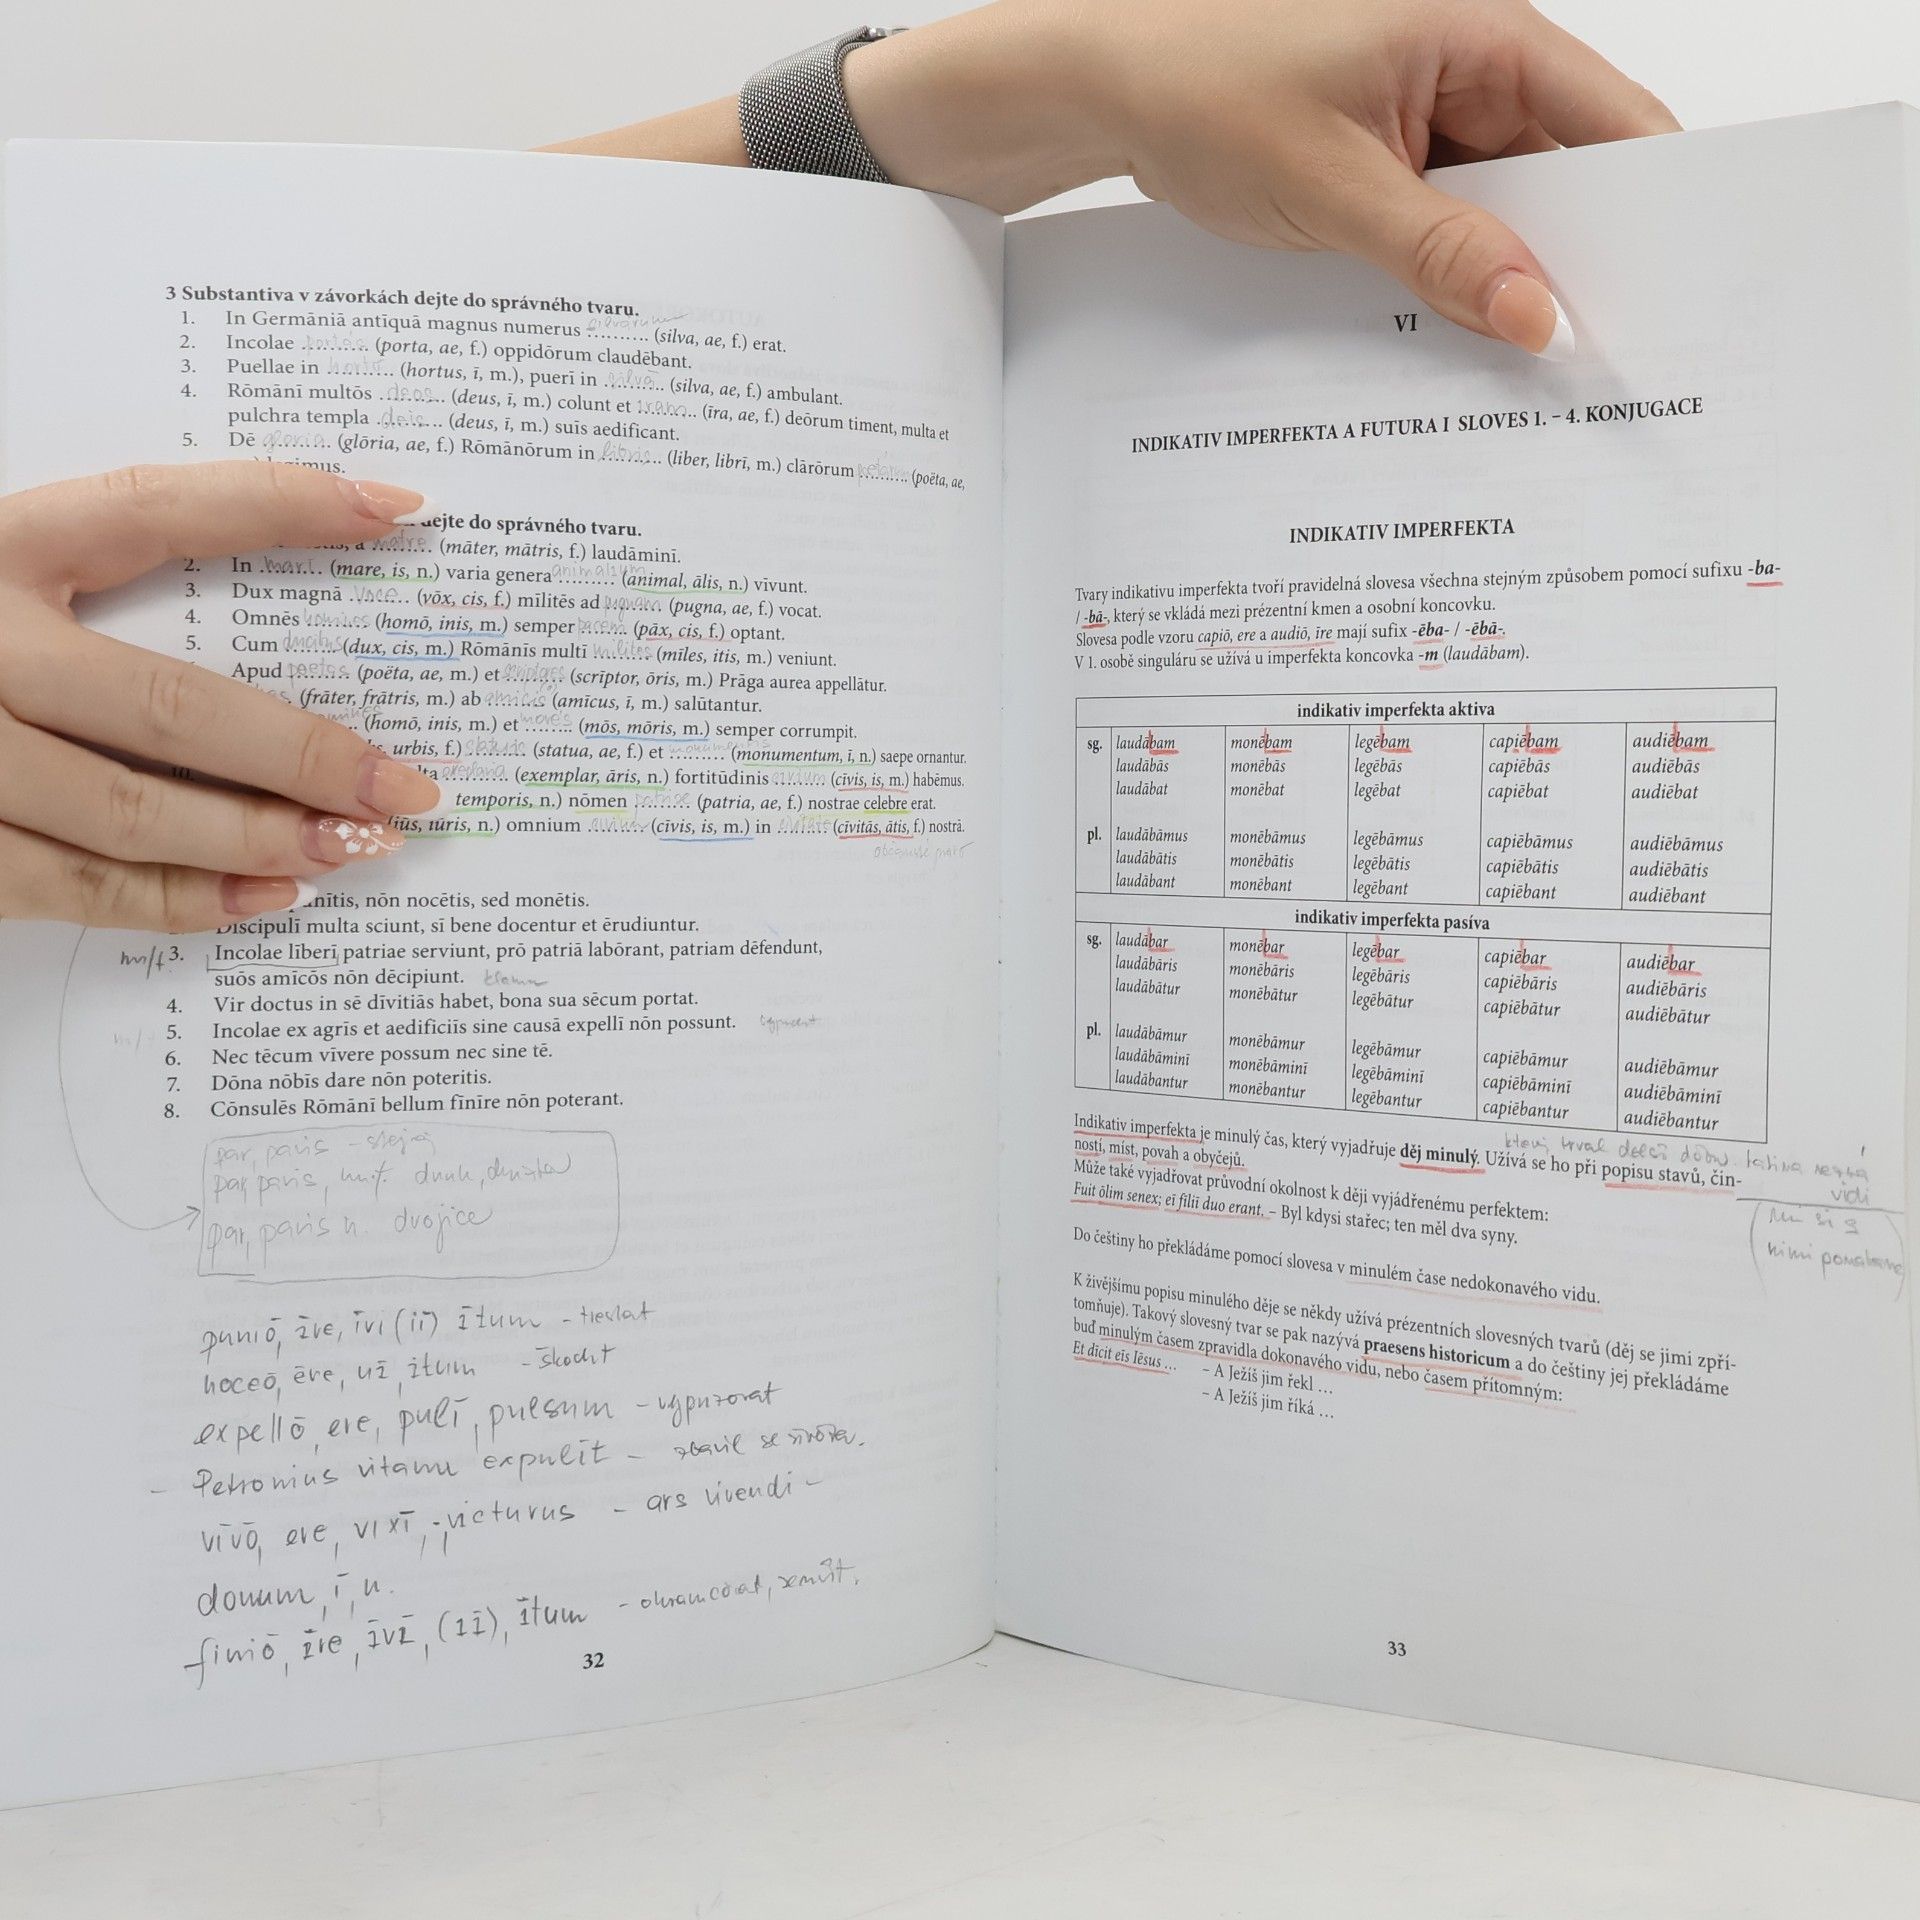 3 Substantiva v závorkách dejte do správného tvaru.
1. In Germāniā antīquā magnus numerus .......... (silva, ae, f.) erat.
2. Incolae portās (porta, ae, f.) oppidōrum claudēbant.
3. Puellae in hortō (hortus, ī, m.), puerī in silvā (silva, ae, f.) ambulant.
4. Rōmānī multōs deos (deus, ī, m.) colunt et iram (īra, ae, f.) deōrum timent, multa et
pulchra templa deis (deus, ī, m.) suīs aedificant.
5. Dē gloria (glōria, ae, f.) Rōmānōrum in libris (liber, librī, m.) clārōrum .......... (poëta, ae,
legimus.
dejte do správného tvaru.
a matre (māter, mātris, f.) laudāminī.
2. In mari (mare, is, n.) varia genera animalium (animal, ālis, n.) vīvunt.
3. Dux magnā voce (vōx, cis, f.) mīlitēs ad pugnam (pugna, ae, f.) vocat.
4. Omnēs homines (homō, inis, m.) semper pacem (pāx, cis, f.) optant.
5. Cum ducibus (dux, cis, m.) Rōmānīs multī milites (mīles, itis, m.) veniunt.
Apud poetas (poëta, ae, m.) et scriptores (scrīptor, ōris, m.) Prāga aurea appellātur.
(frāter, frātris, m.) ab amicis (amīcus, ī, m.) salūtantur.
(homō, inis, m.) et mores (mōs, mōris, m.) semper corrumpit.
urbis, f.) statuis (statua, ae, f.) et monumentis (monumentum, ī, n.) saepe ornantur.
10. (exemplar, āris, n.) fortitūdinis civium (cīvis, is, m.) habēmus.
temporis, n.) nōmen patriae (patria, ae, f.) nostrae celebre erat.
iūs, iūris, n.) omnium civium (cīvis, is, m.) in .......... (cīvitās, ātis, f.) nostrā.
nōn nocētis, sed monētis.
Discipulī multa sciunt, sī bene docentur et ērudiuntur.
m/f 3. Incolae līberī patriae serviunt, prō patriā labōrant, patriam dēfendunt,
suōs amīcōs nōn dēcipiunt.
4. Vir doctus in sē dīvitiās habet, bona sua sēcum portat.
5. Incolae ex agrīs et aedificiīs sine causā expellī nōn possunt.
6. Nec tēcum vīvere possum nec sine tē.
7. Dōna nōbīs dare nōn poteritis.
8. Cōnsulēs Rōmānī bellum fīnīre nōn poterant.
par, paris – stejný
par, paris, m/f. druh, družka
par, paris n. dvojice
puniō, īre, īvi (ii) ītum – trestat
noceō, ēre, uī, itum – škodit
expellō, ere, pulī, pulsum – vypuzovat
– Petronius vitam expulit – zbavil se života.
vīvō, ere, vīxī, -, victurus – ars vivendi –
donum, ī, n.
finiō, īre, īvī, (iī), ītum – ohraničovat,
32
VI
INDIKATIV IMPERFEKTA A FUTURA I SLOVES 1. – 4. KONJUGACE
INDIKATIV IMPERFEKTA
Tvary indikativu imperfekta tvoří pravidelná slovesa všechna stejným způsobem pomocí sufixu -ba-
/ -bā-, který se vkládá mezi prézentní kmen a osobní koncovku.
Slovesa podle vzoru capiō, ere a audiō, īre mají sufix -ēba- / -ēbā-.
V 1. osobě singuláru se užívá u imperfekta koncovka -m (laudābam).
indikativ imperfekta aktiva
sg. laudābam monēbam legēbam capiēbam audiēbam
laudābās monēbās legēbās capiēbās audiēbās
laudābat monēbat legēbat capiēbat audiēbat
pl. laudābāmus monēbāmus legēbāmus capiēbāmus audiēbāmus
laudābātis monēbātis legēbātis capiēbātis audiēbātis
laudābant monēbant legēbant capiēbant audiēbant
indikativ imperfekta pasíva
sg. laudābar monēbar legēbar capiēbar audiēbar
laudābāris monēbāris legēbāris capiēbāris audiēbāris
laudābātur monēbātur legēbātur capiēbātur audiēbātur
pl. laudābāmur monēbāmur legēbāmur capiēbāmur audiēbāmur
laudābāminī monēbāminī legēbāminī capiēbāminī audiēbāminī
laudābantur monēbantur legēbantur capiēbantur audiēbantur
který trval delší dobu. latina nezná
vidi
Indikativ imperfekta je minulý čas, který vyjadřuje děj minulý. Užívá se ho při popisu stavů, čin-
ností, míst, povah a obyčejů.
Může také vyjadřovat průvodní okolnost k ději vyjádřenému perfektem:
Fuit ōlim senex; eī fīliī duo erant. – Byl kdysi stařec; ten měl dva syny.
Do češtiny ho překládáme pomocí slovesa v minulém čase nedokonavého vidu.
K živějšímu popisu minulého děje se někdy užívá prézentních slovesných tvarů (děj se jimi zpří-
tomňuje). Takový slovesný tvar se pak nazývá praesens historicum a do češtiny jej překládáme
buď minulým časem zpravidla dokonavého vidu, nebo časem přítomným:
Et dīcit eīs Iēsus ... – A Ježíš jim řekl ...
– A Ježíš jim říká ...
33